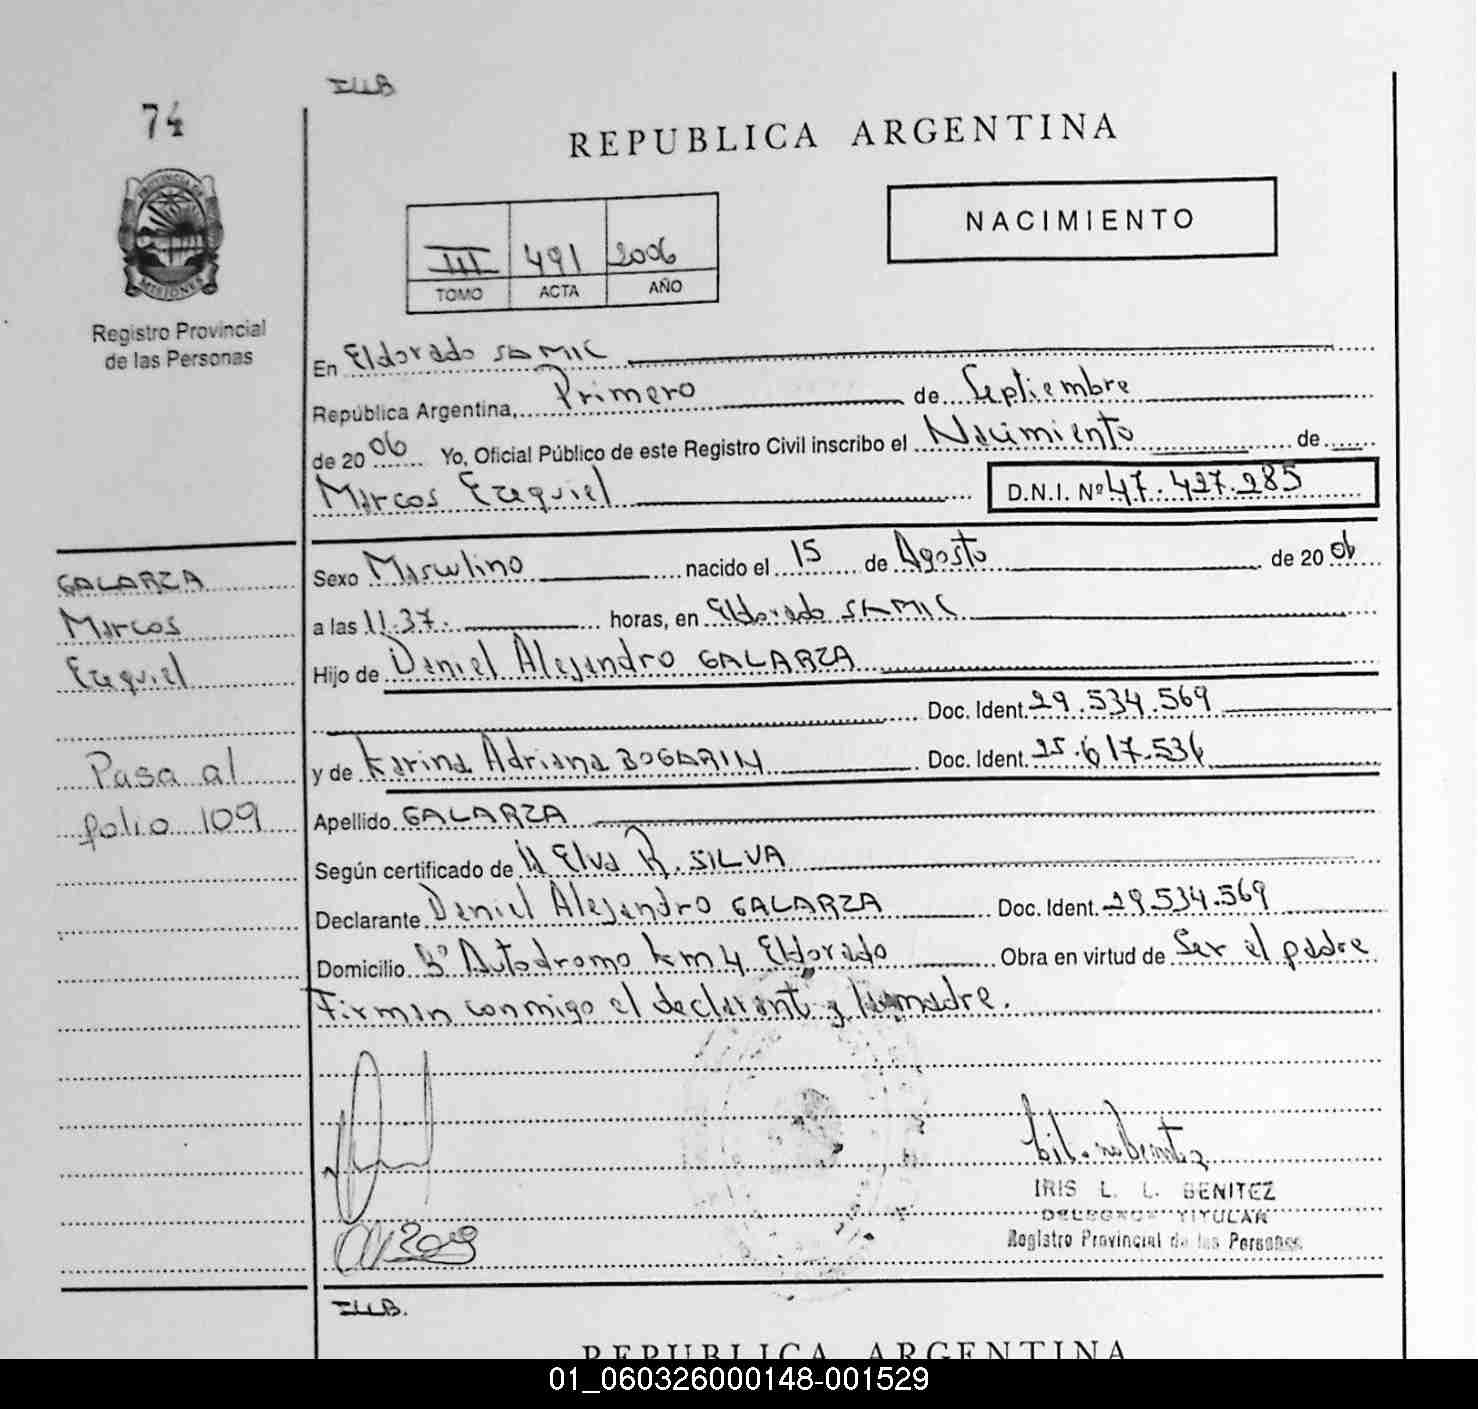 ILLB
74
REPUBLICA ARGENTINA
PROVINCIA DE
MISIONES
Registro Provincial
de las Personas
NACIMIENTO
III 491 2006
TOMO ACTA AÑO
En Eldorado SAMIC
República Argentina, Primero de Septiembre
de 2006 Yo, Oficial Público de este Registro Civil inscribo el Nacimiento de
Marcos Ezequiel D.N.I. Nº 47.427.285
GALARZA
Marcos
Ezequiel
Pasa al
folio 109
Sexo Masculino nacido el 15 de Agosto de 2006
a las 11.37. horas, en Eldorado SAMIC
Hijo de Daniel Alejandro GALARZA
Doc. Ident. 29.534.569
y de Karina Adriana BOGARIN Doc. Ident. 25.617.536
Apellido GALARZA
Según certificado de Elva R. SILVA
Declarante Daniel Alejandro GALARZA Doc. Ident. 29.534.569
Domicilio Bº Autodromo km 4 Eldorado Obra en virtud de Ser el padre
Firman conmigo el declarante y la madre.
IRIS L. L. BENITEZ
DELEGADA TITULAR
Registro Provincial de las Personas
ILLB.
REPUBLICA ARGENTINA
01_060326000148-001529